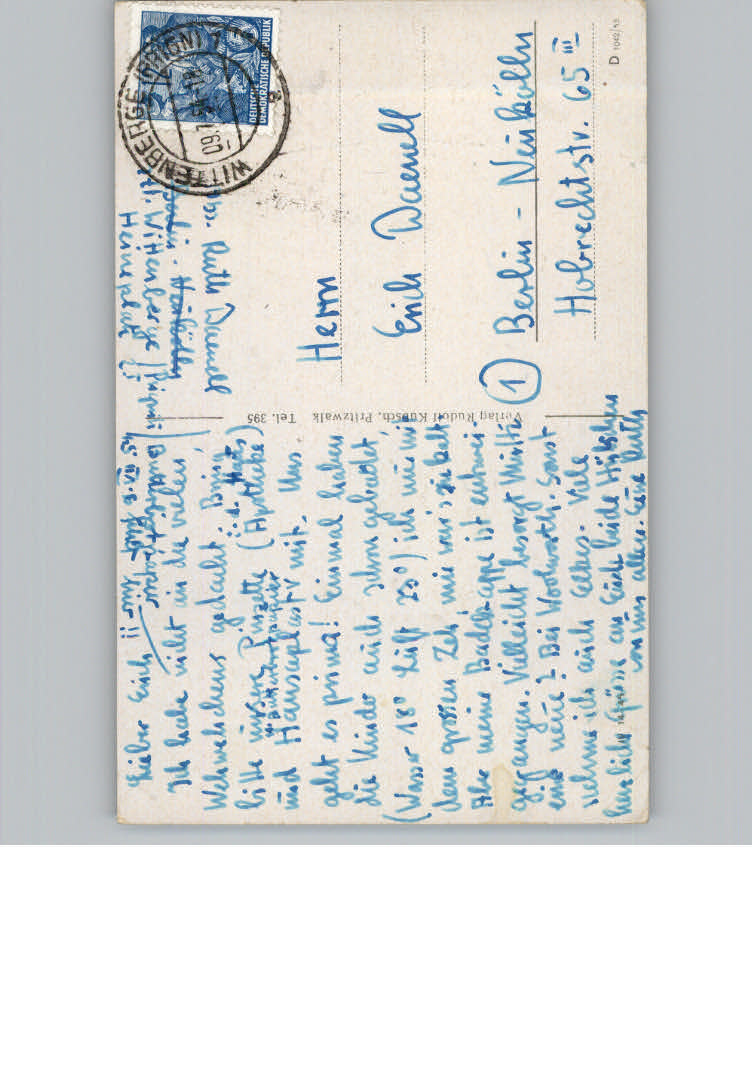 Lieber Erich
Ich habe nicht an die vielen
Wehwehchens gedacht. Bring
bitte unsere Pinzette (Apotheke)
und Hansaplast mit. Uns
geht es prima! Einmal haben
die Kinder auch schon gebadet
(Wasser 18° Luft 20°) ich nur mit
dem grossen Zeh, mir war's zu kalt.
Aber meine Badekappe ist
gegangen. Vielleicht besorgt Mutti
eine neue? Bei Woolworth. Sonst
nehme ich auch Selbers. Viele
herzliche Grüsse an Euch beide
von uns allen. Eure Ruth
Ruth Daenell
Wittenberge
WITTENBERGE (PRIGN) 1
09.7.54
a
DEUTSCHE
DEMOKRATISCHE REPUBLIK
Verlag Rudolf Kubsch, Pritzwalk Tel. 395
Herrn
Erich Daenell
(1) Berlin - Neukölln
Hobrechtstr. 65 III
D 1042/53